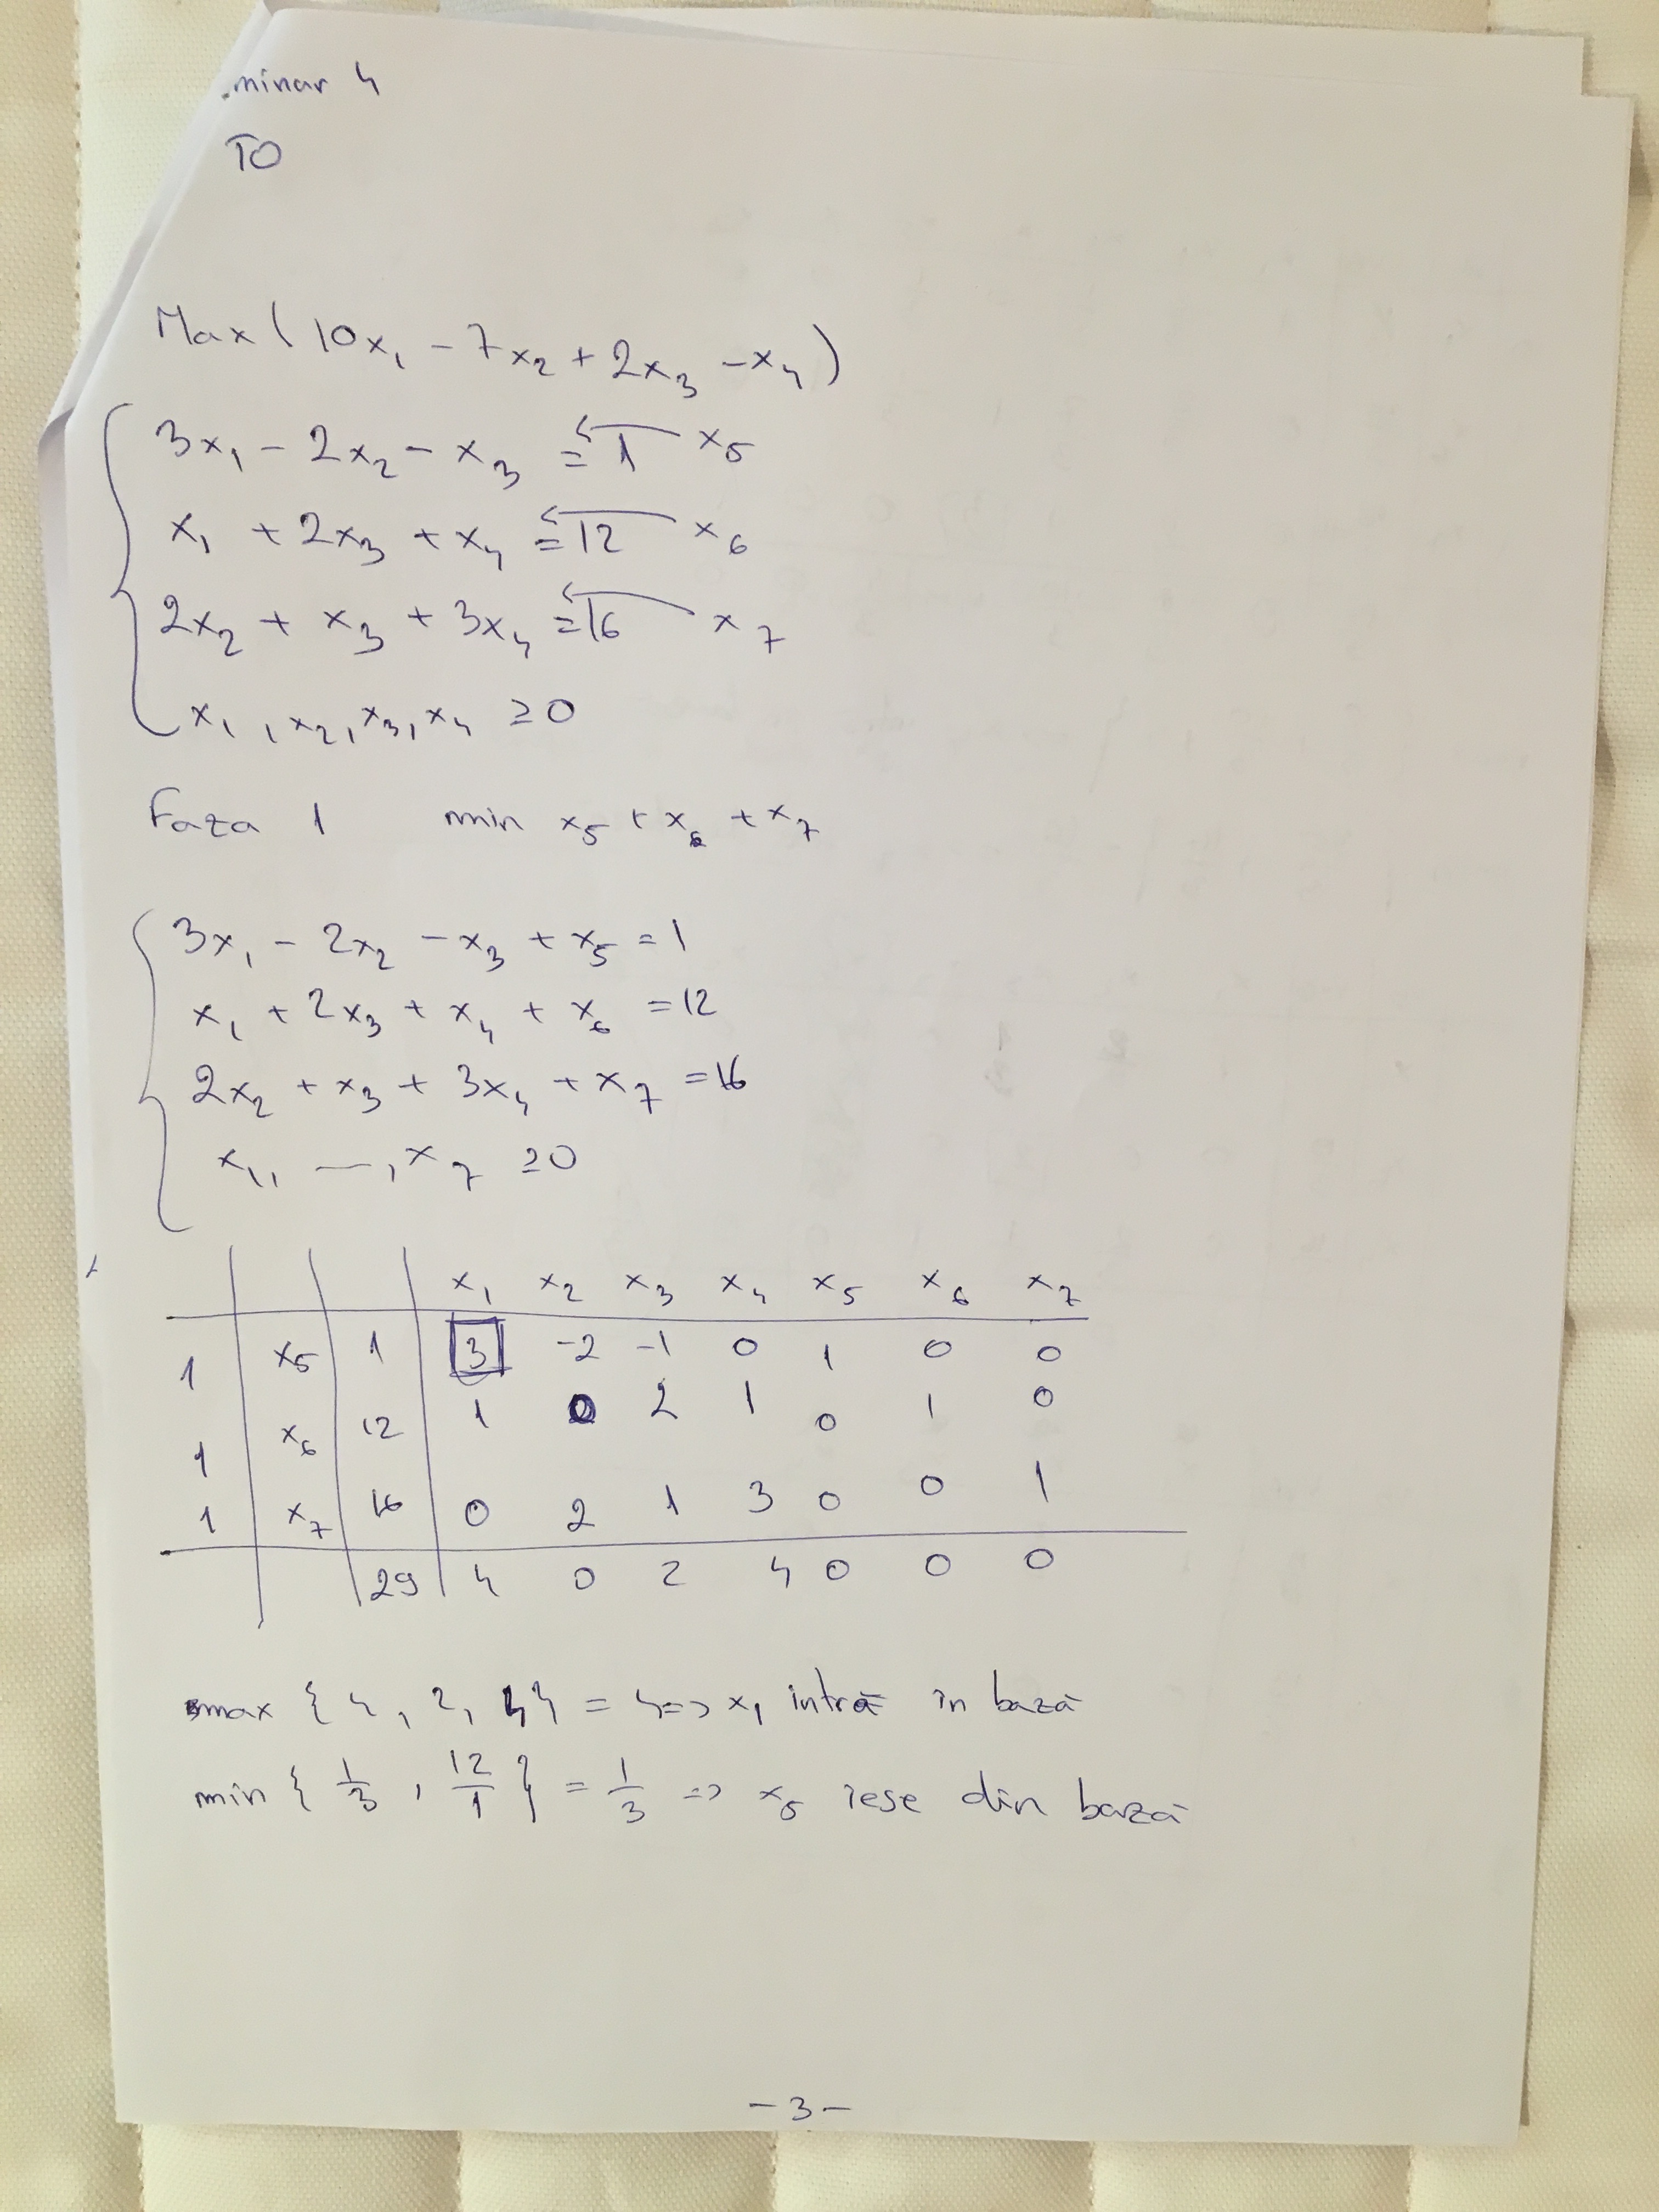 minar 4
TO
Max (10x₁ - 7x₂ + 2x₃ - x₄)
3x₁ - 2x₂ - x₃ = 1 ← x₅
x₁ + 2x₃ + x₄ = 12 ← x₆
2x₂ + x₃ + 3x₄ = 16 ← x₇
x₁, x₂, x₃, x₄ ≥ 0
Faza 1 min x₅ + x₆ + x₇
3x₁ - 2x₂ - x₃ + x₅ = 1
x₁ + 2x₃ + x₄ + x₆ = 12
2x₂ + x₃ + 3x₄ + x₇ = 16
x₁, —, x₇ ≥ 0
x₁ x₂ x₃ x₄ x₅ x₆ x₇
1 x₅ 1 3 -2 -1 0 1 0 0
1 x₆ 12 1 0 2 1 0 1 0
1 x₇ 16 0 2 1 3 0 0 1
29 4 0 2 4 0 0 0
max {4, 2, 4} = 4 => x₁ intră în bază
min {1/3, 12/1} = 1/3 => x₅ iese din bază
- 3 -